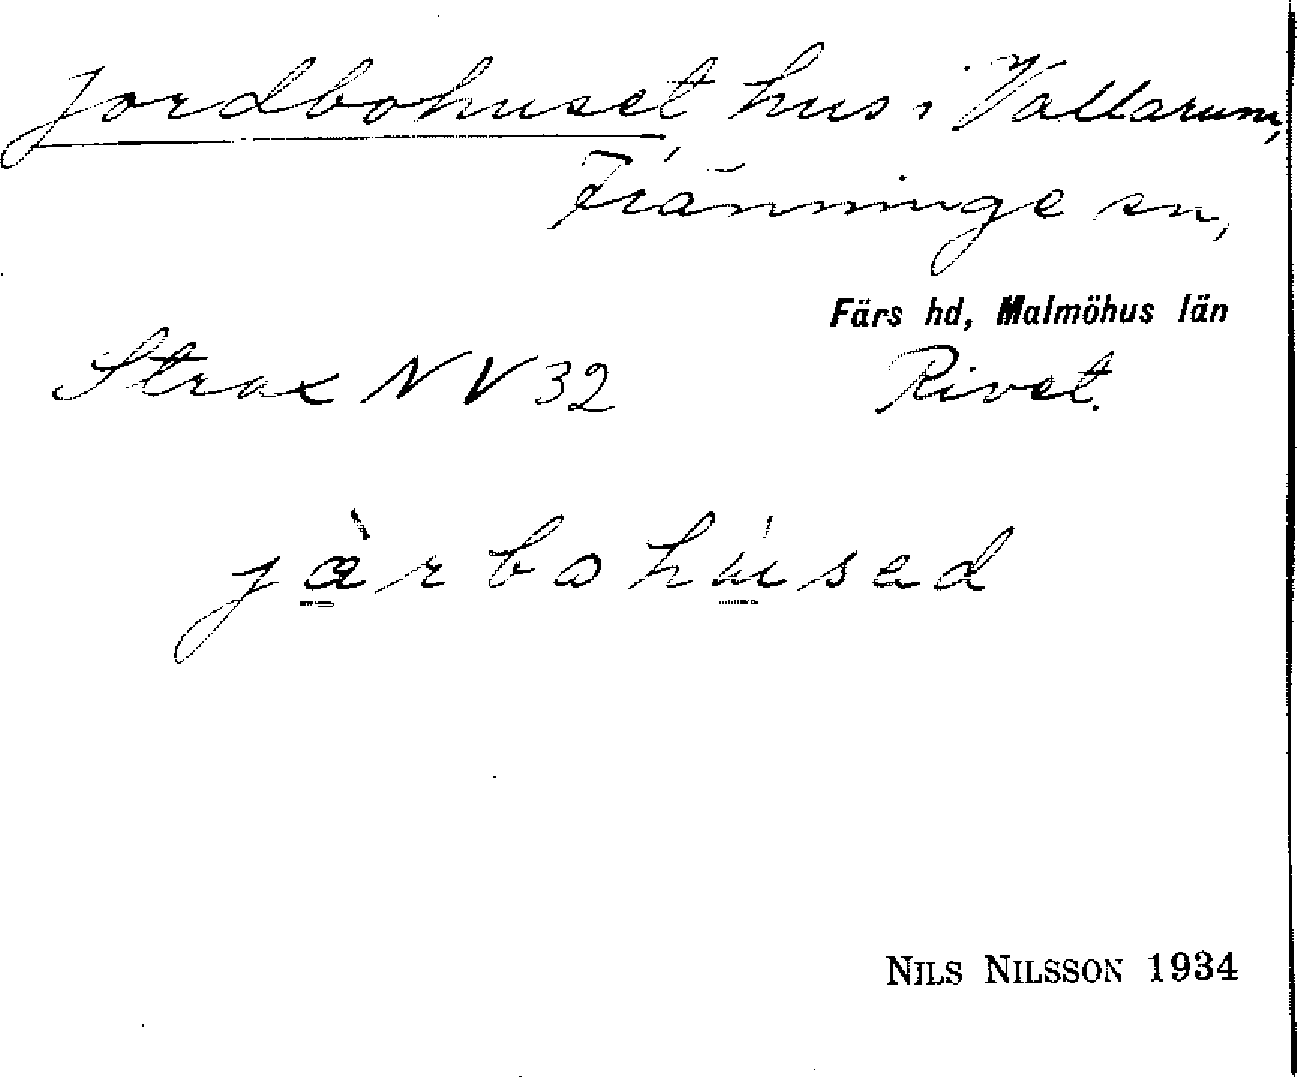 Jordbohuset, hus i Vallarum,
Fränninge sn,
Färs hd, Malmöhus län
Strax NV 32 Rivet.
jæ̀rbohúsed
NILS NILSSON 1934